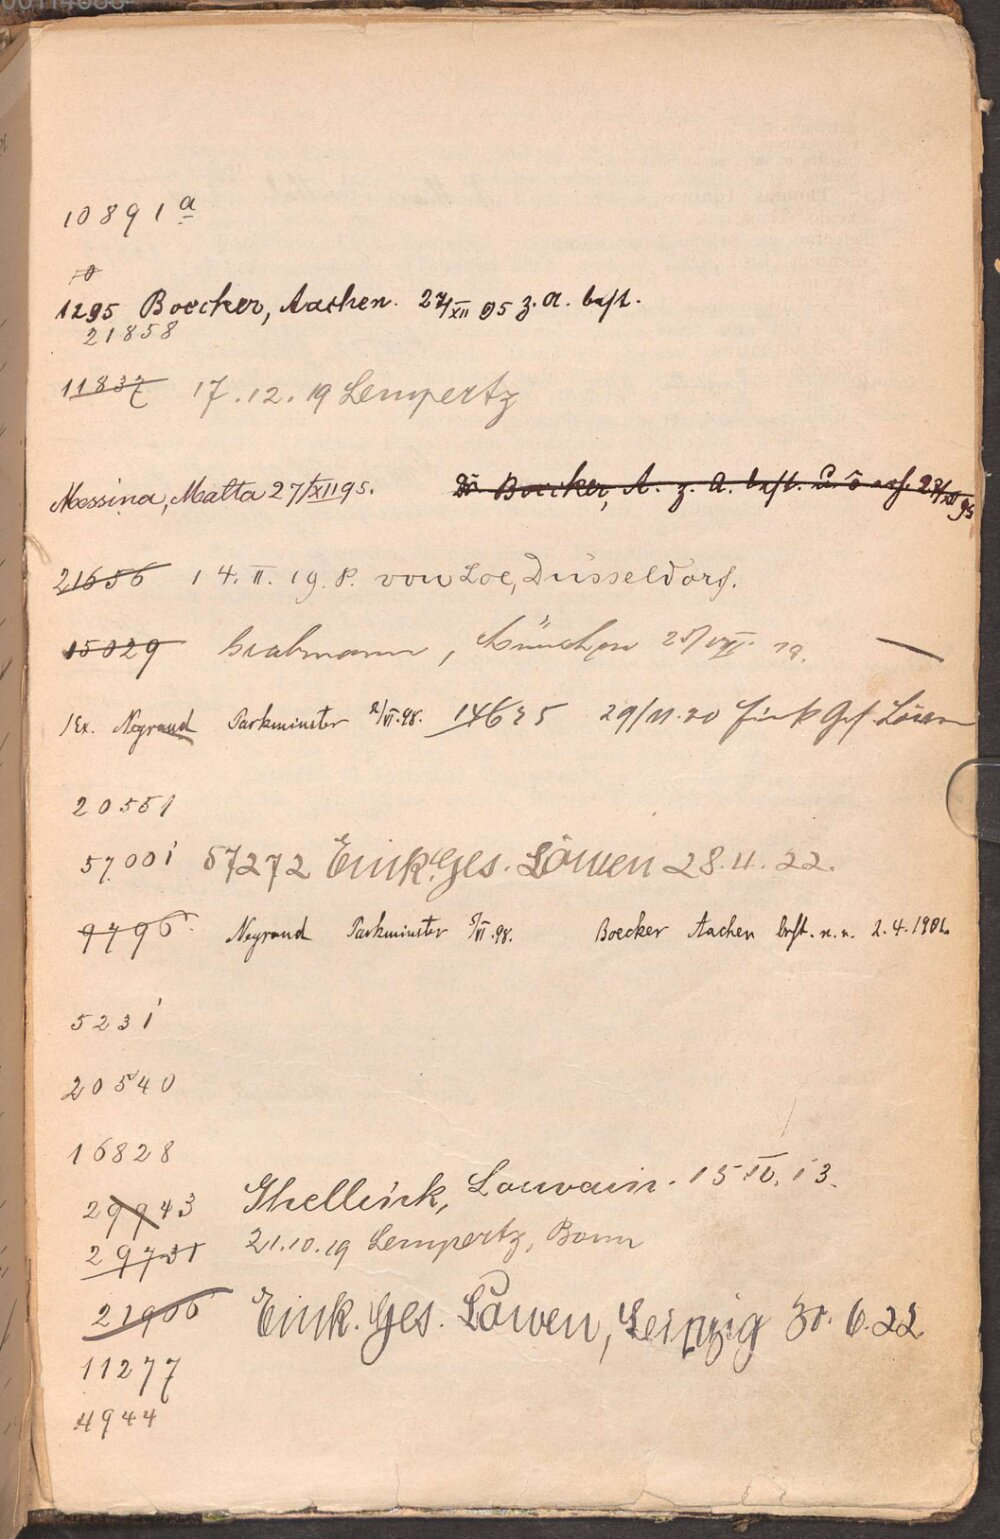 10891 a
1295 Boecker, Aachen. 27/XII 95 z. A. best.
21858
11837 17.12.19 Lempertz
Messina, Malta 27/XII 95. Dr Boecker, A. z. A. best.
21656 14. II. 19. P. von Loe, Düsseldorf.
15029 Grabmann, München
1 Ex. Neyrand Parkminster 2/VI.98. 14625 29/11.20 Eink Ges. Löwen
20551
57001 57272 Eink. Ges. Löwen 28.4.22.
9796 Neyrand Parkminster VI.98. Boecker Aachen best. n. n. 2.4.1901.
5231
20540
16828
29943 Ghellink, Louvain. 15 IV. 13.
29731 21.10.19 Lempertz, Bonn
21906 Eink. Ges. Löwen, Leipzig 30.6.22
11277
4944